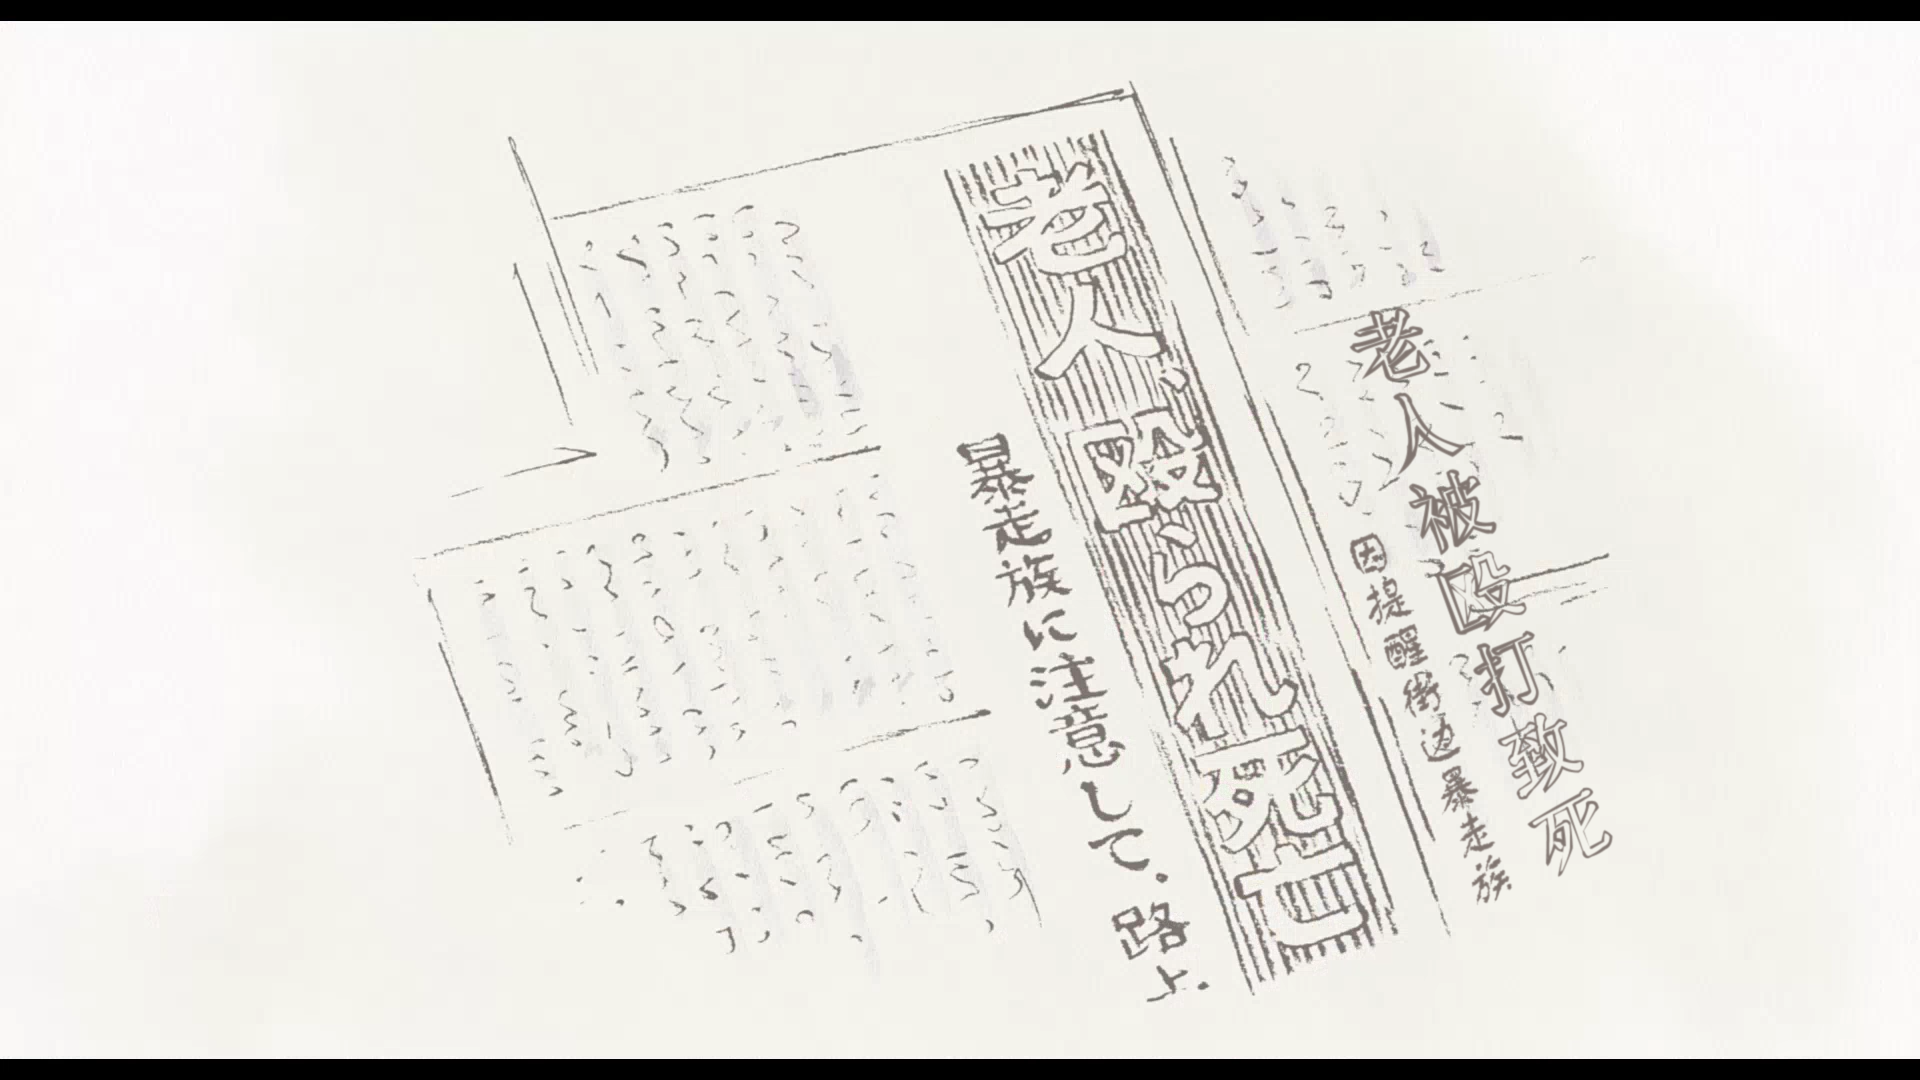 老人被殴打致死
因提醒街边暴走族
老人、殴られ死亡
暴走族に注意して、路上